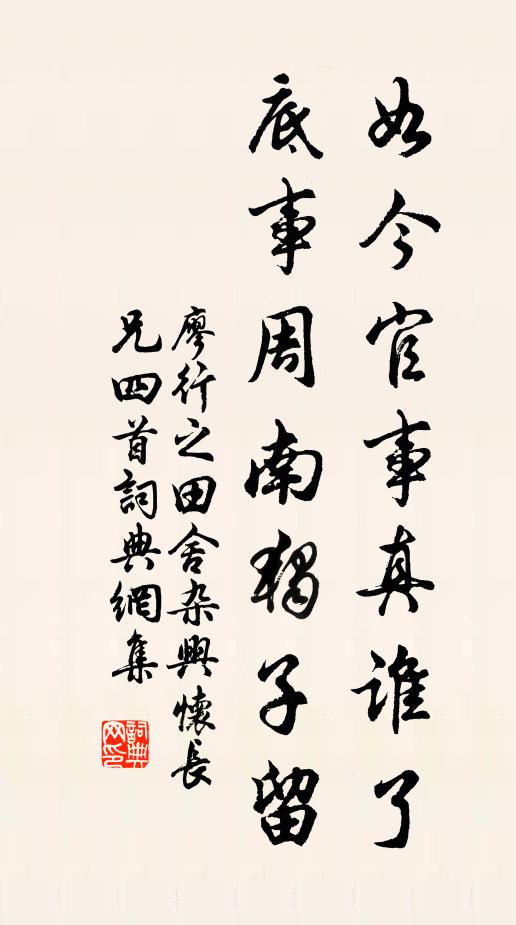 如今官事真谁了
底事周南独子留
廖行之田舍杂兴怀长
兄四首词典网集
词典
网印